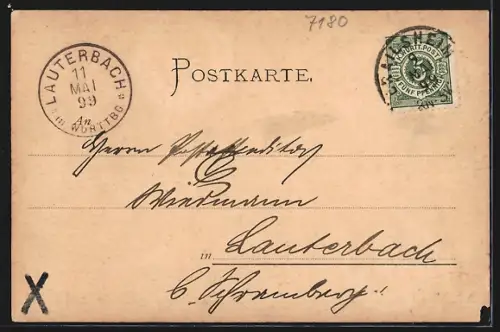 7180
LAUTERBACH
11
MAI
99
An
in WÜRTTBG
POSTKARTE.
K. WÜRTT. POST
FÜNF PFENNIG
Herrn Postexpeditor
Wiedmann
in Lauterbach
b/ Schramberg
X